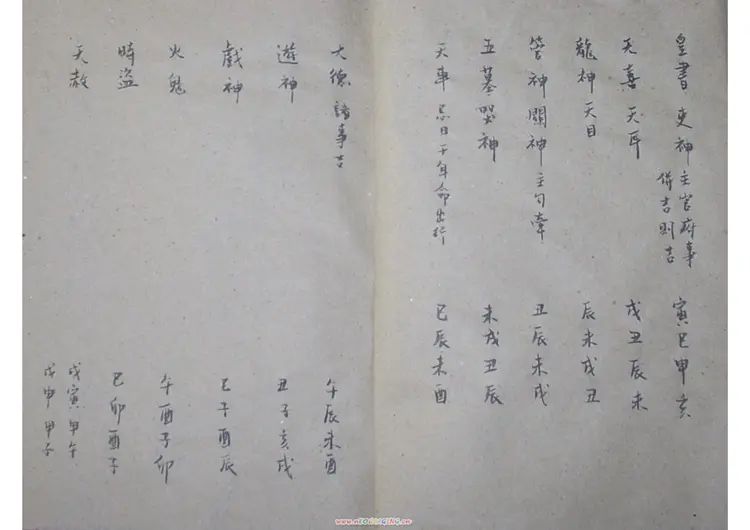 皇書 吏神 主官府事 寅巳申亥
併吉則吉
天喜 天耳 戌丑辰未
龍神 天目 辰未戌丑
管神 關神 主勾牽 丑辰未戌
五墓 哭神 未戌丑辰
天車 忌日干年命出行 巳辰未酉
大德 諸事吉 午辰未酉
遊神 丑子亥戌
戲神 巳子酉辰
火鬼 午酉子卯
時盜 巳卯酉子
天赦 戊寅 甲午
戊申 甲子